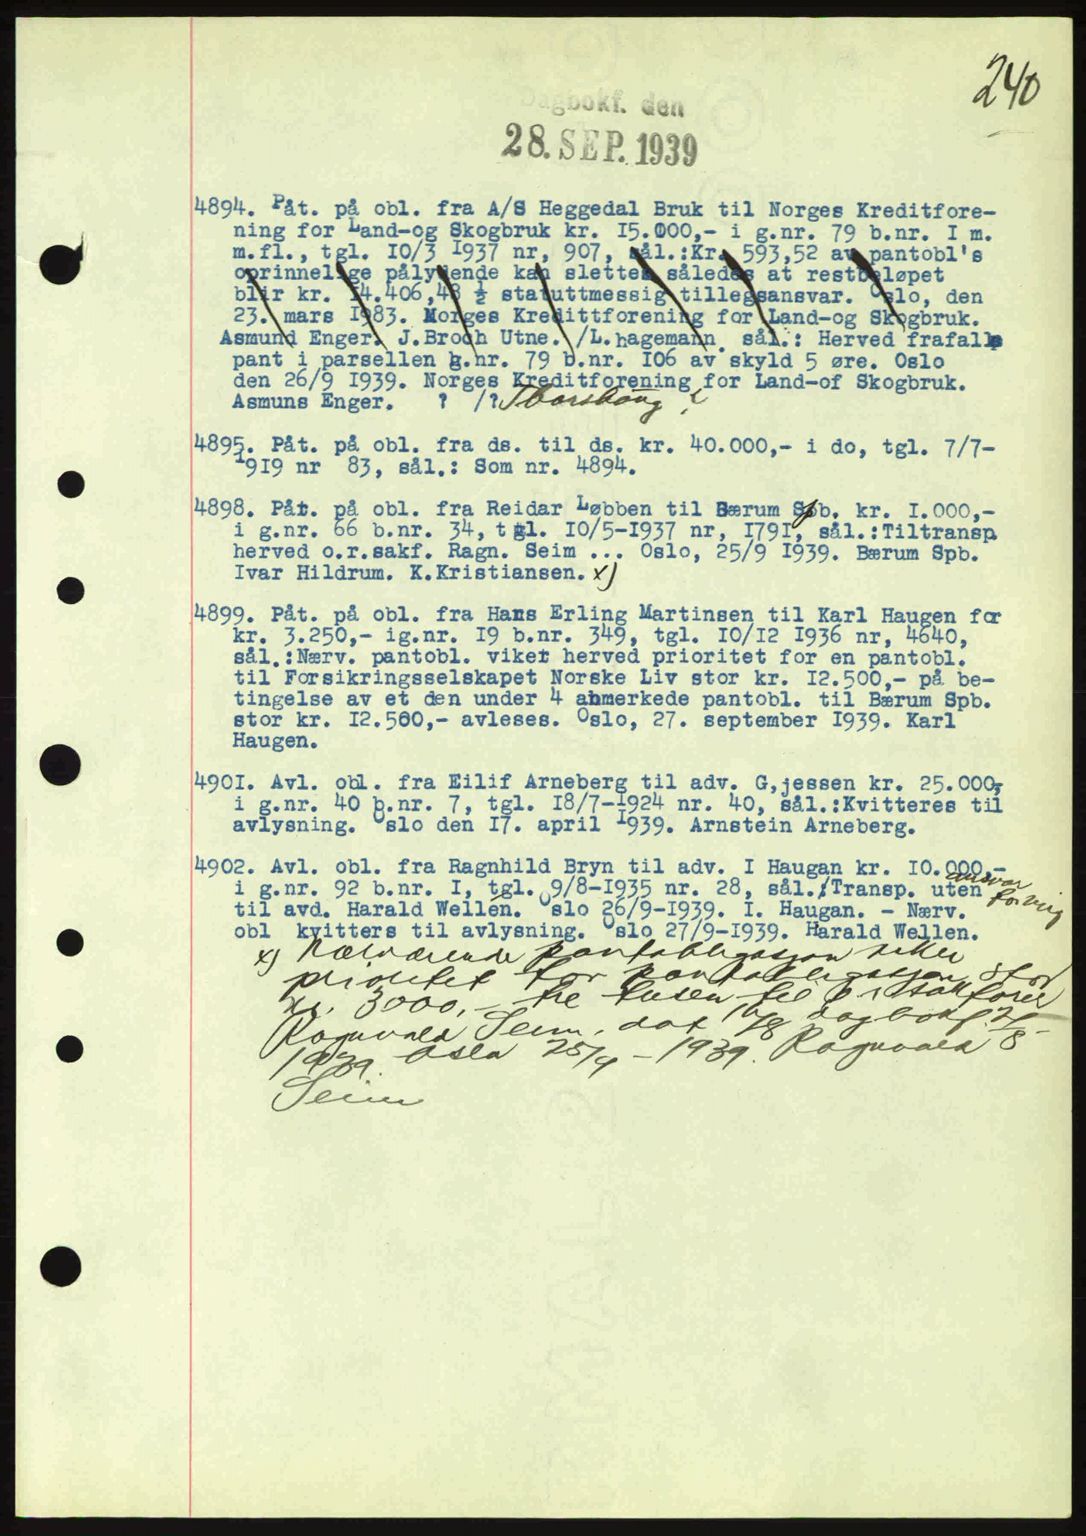 240
Dagbokf. den
28. SEP. 1939
4894. Påt. på obl. fra A/S Heggedal Bruk til Norges Kreditfore-
ning for Land-og Skogbruk kr. 15.000,- i g.nr. 79 b.nr. I m.
m.fl., tgl. 10/3 1937 nr, 907, sål.:Kr. 593,52 av pantobl's
oprinnelige pålydende kan slettes således at restbeløpet
blir kr. 14.406,48 ½ statuttmessig tilleggsansvar. Oslo, den
23. mars 1983. Norges Kredittforening for Land-og Skogbruk.
Asmund Enger. J.Broch Utne. /L.hagemann sål.: Herved frafalls
pant i parsellen g.nr. 79 b.nr. 106 av skyld 5 øre. Oslo
den 26/9 1939. Norges Kreditforening for Land-of Skogbruk.
Asmuns Enger. ? /? Thorshaug
4895. Påt. på obl. fra ds. til ds. kr. 40.000,- i do, tgl. 7/7-
1919 nr 83, sål.: Som nr. 4894.
4898. Påt. på obl. fra Reidar Løbben til Bærum Spb. kr. 1.000,-
i g.nr. 66 b.nr. 34, tgl. 10/5-1937 nr, 1791, sål.:Tiltransp
herved o.r.sakf. Ragn. Seim ... Oslo, 25/9 1939. Bærum Spb.
Ivar Hildrum. K.Kristiansen. x)
4899. Påt. på obl. fra Hans Erling Martinsen til Karl Haugen for
kr. 3.250,- ig.nr. 19 b.nr. 349, tgl. 10/12 1936 nr, 4640,
sål.:Nærv. pantobl. viker herved prioritet for en pantobl.
til Forsikringsselskapet Norske Liv stor kr. 12.500,- på be-
tingelse av et den under 4 anmerkede pantobl. til Bærum Spb.
stor kr. 12.500,- avleses. Oslo, 27. september 1939. Karl
Haugen.
4901. Avl. obl. fra Eilif Arneberg til adv. G,jessen kr. 25.000,-
i g.nr. 40 b.nr. 7, tgl. 18/7-1924 nr. 40, sål.:Kvitteres til
avlysning. Oslo den 17. april 1939. Arnstein Arneberg.
4902. Avl. obl. fra Ragnhild Bryn til adv. I Haugan kr. 10.000,-
i g.nr. 92 b.nr. I, tgl. 9/8-1935 nr. 28, sål.:Transp. uten ansvar for mig
til avd. Harald Wellen. Oslo 26/9-1939. I. Haugan. - Nærv.
obl kvitters til avlysning. Oslo 27/9-1939. Harald Wellen.
x) Nærværende pantobligasjon viker
prioritet for pantobligasjon stor
kr. 3000,- tre tusen til o.r.sakfører
Ragnvald Seim, dat 16/8 dagbokf. 21/8-
1939. Oslo 25/9-1939. Ragnvald
Seim